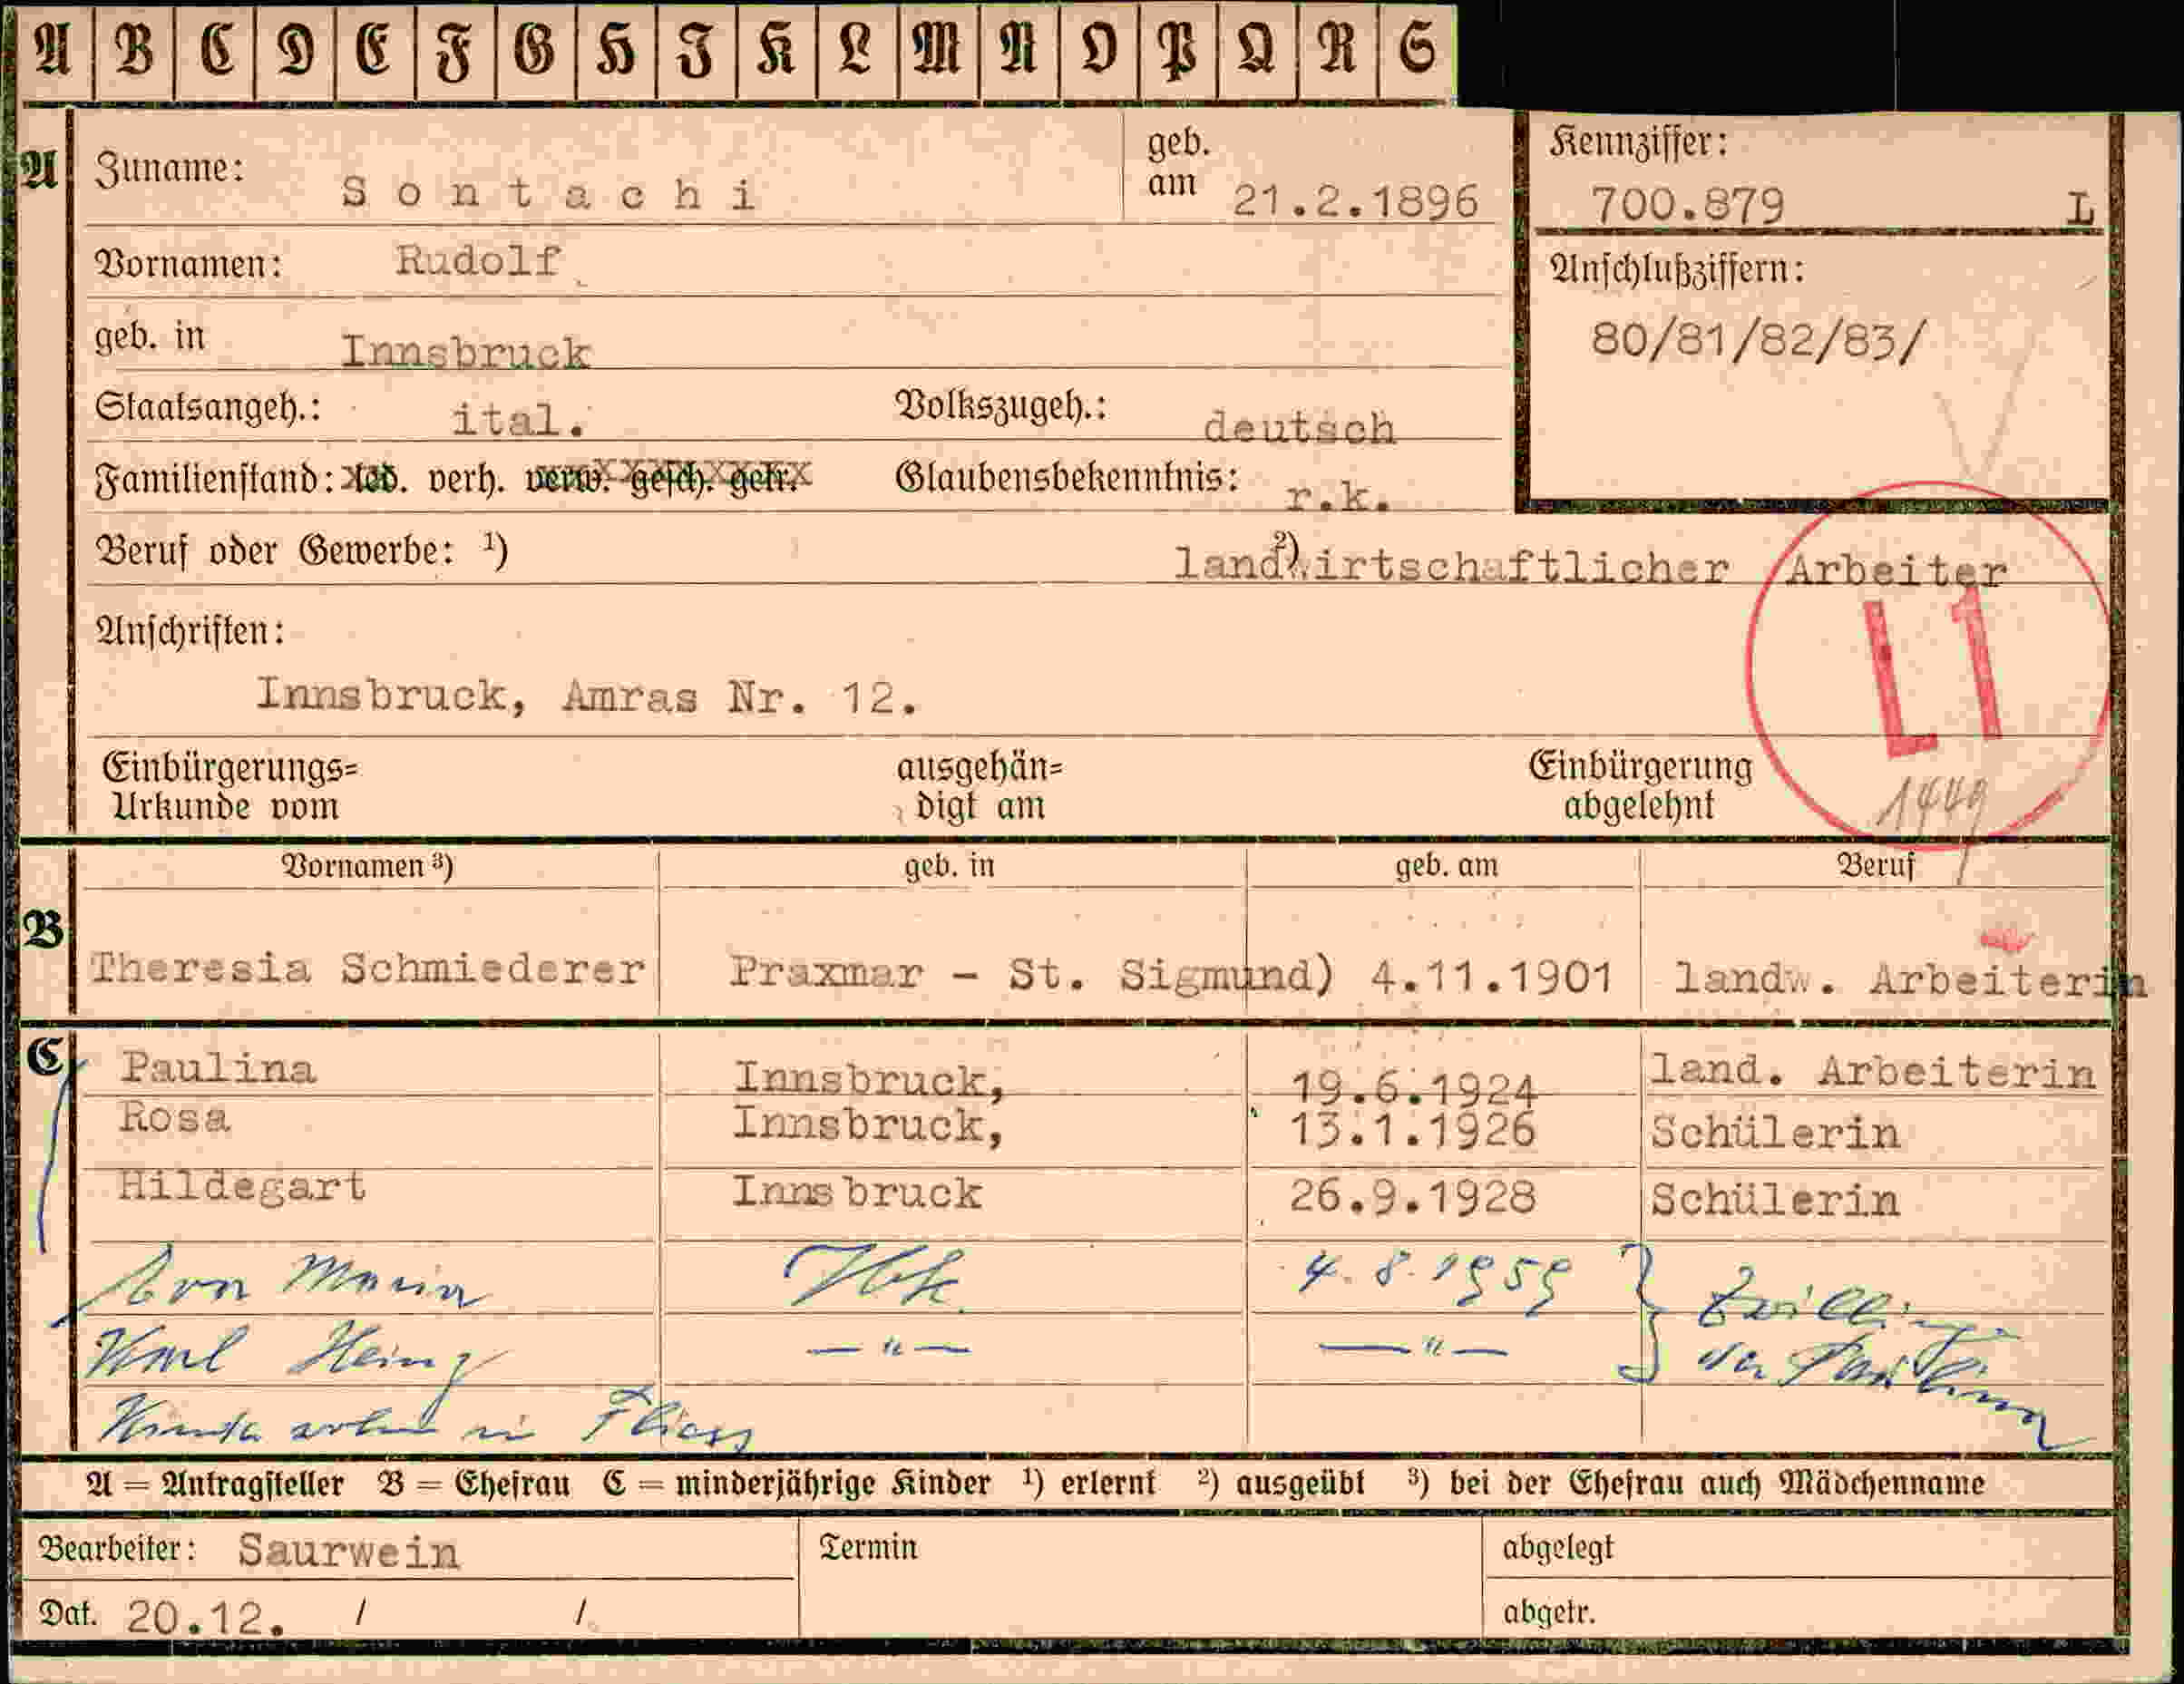 A B C D E F G H J K L M N O P Q R S
A Zuname: Sontachi geb. am 21.2.1896
Kennziffer: 700.879 L
Vornamen: Rudolf
Anschlußziffern:
80/81/82/83/
geb. in Innsbruck
Staatsangeh.: ital. Volkszugeh.: deutsch
Familienstand: led. verh. verw. gesch. getr. Glaubensbekenntnis: r.k.
Beruf oder Gewerbe: ¹) ²) landwirtschaftlicher Arbeiter
L1
Anschriften:
Innsbruck, Amras Nr. 12.
Einbürgerungs= ausgehän= Einbürgerung
Urkunde vom digt am abgelehnt
1449
Vornamen ³) geb. in geb. am Beruf
B Theresia Schmiederer Praxmar - St. Sigmund) 4.11.1901 landw. Arbeiterin
C Paulina Innsbruck, 19.6.1924 land. Arbeiterin
Rosa Innsbruck, 13.1.1926 Schülerin
Hildegart Innsbruck 26.9.1928 Schülerin
Maria Ibk. 4.8.1959 } Zwillinge
Karl Heinz —"— —"— der Paulina
Kinder in Fliess
A = Antragsteller B = Ehefrau C = minderjährige Kinder ¹) erlernt ²) ausgeübt ³) bei der Ehefrau auch Mädchenname
Bearbeiter: Saurwein Termin abgelegt
Dat. 20.12. / /. abgetr.